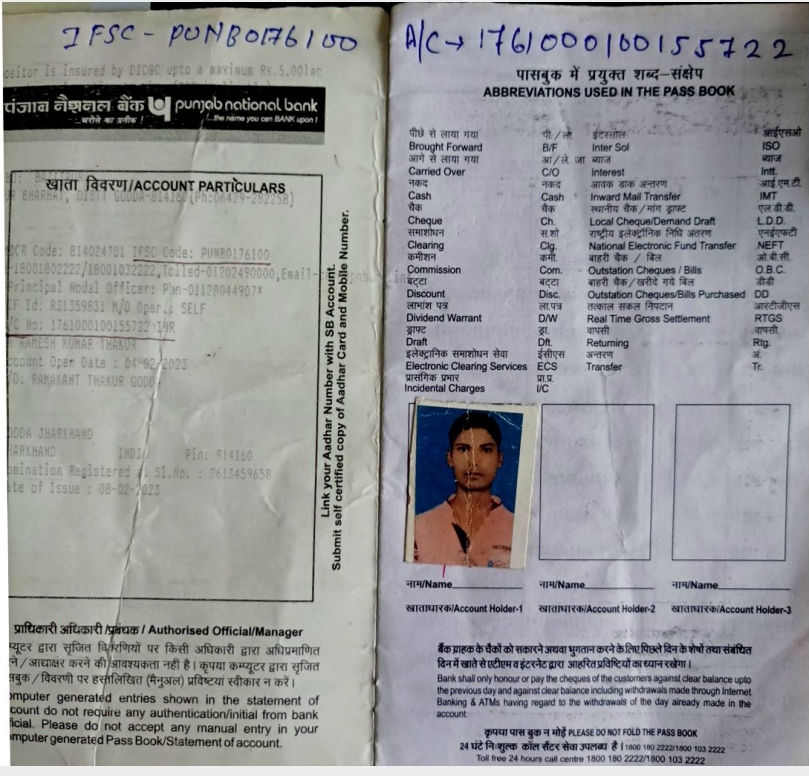 IFSC - PUNB0176100
ositor is insured by DICGC upto a maximum Rs.5.00lac
पंजाब नैशनल बैंक punjab national bank
...भरोसे का प्रतीक ! ...the name you can BANK upon !
खाता विवरण/ACCOUNT PARTICULARS
BHARHAT, DISTT GODDA-814160(Ph:06429-282258)
ICR Code: 814024701 IFSC Code: PUNB0176100
-18001802222/18001032222,Tolled-01202490000,Email-
Principal Nodal Officer: Phn-01128044907*
F Id: R31359831 M/O Oper.: SELF
/C No: 1761000100155722 INR
RAMESH KUMAR THAKUR
ccount Open Date : 04-02-2023
/O: RAMAKANT THAKUR GODDA
ODDA JHARKHAND
HARKHAND INDIA Pin: 814160
omination Registered at Sl.No. : 7613459658
ate of Issue : 08-02-2023
Link your Aadhar Number with SB Account.
Submit self certified copy of Aadhar Card and Mobile Number.
प्राधिकारी अधिकारी /प्रबंधक / Authorised Official/Manager
प्यूटर द्वारा सृजित विवरणियों पर किसी अधिकारी द्वारा अधिप्रमाणित
ने / आद्याक्षर करने की आवश्यकता नहीं है। कृपया कम्प्यूटर द्वारा सृजित
सबुक / विवरणी पर हस्तलिखित (मैनुअल) प्रविष्टयां स्वीकार न करें।
omputer generated entries shown in the statement of
count do not require any authentication/initial from bank
ficial. Please do not accept any manual entry in your
mputer generated Pass Book/Statement of account.
A/C → 1761000100155722
पासबुक में प्रयुक्त शब्द-संक्षेप
ABBREVIATIONS USED IN THE PASS BOOK
पीछे से लाया गया पी./ला. इंटरसोल आईएसओ
Brought Forward B/F Inter Sol ISO
आगे से लाया गया आ/ले. जा ब्याज ब्याज
Carried Over C/O Interest Intt.
नकद नकद आवक डाक अन्तरण आई.एम.टी.
Cash Cash Inward Mail Transfer IMT
चैक चैक स्थानीय चैक/मांग ड्राफ्ट एल.डी.डी.
Cheque Ch. Local Cheque/Demand Draft L.D.D.
समाशोधन स.शो राष्ट्रीय इलेक्ट्रोनिक निधि अंतरण एनईएफटी
Clearing Clg. National Electronic Fund Transfer NEFT
कमीशन कमी. बाहरी चैक / बिल ओ.बी.सी.
Commission Com. Outstation Cheques / Bills O.B.C.
बट्टा बट्टा बाहरी चैक/खरीदे गये बिल डीडी
Discount Disc. Outstation Cheques/Bills Purchased DD
लाभांश पत्र ला.पत्र तत्काल सकल निपटान आरटीजीएस
Dividend Warrant D/W Real Time Gross Settlement RTGS
ड्राफ्ट ड्रा. वापसी वापसी
Draft Dft. Returning Rtg.
इलेक्ट्रानिक समाशोधन सेवा ईसीएस अन्तरण अं.
Electronic Clearing Services ECS Transfer Tr.
प्रासंगिक प्रभार प्रा.प्र.
Incidental Charges I/C
नाम/Name नाम/Name नाम/Name
खाताधारक/Account Holder-1 खाताधारक/Account Holder-2 खाताधारक/Account Holder-3
बैंक ग्राहक के चैकों को सकारने अथवा भुगतान करने के लिए पिछले दिन के शेषों तथा संबंधित
दिन में खाते से एटीएम व इंटरनेट द्वारा आहरित प्रविष्टियों का ध्यान रखेगा।
Bank shall only honour or pay the cheques of the customers against clear balance upto
the previous day and against clear balance including withdrawals made through Internet
Banking & ATMs having regard to the withdrawals of the day already made in the
account.
कृपया पास बुक न मोड़ें PLEASE DO NOT FOLD THE PASS BOOK
24 घंटे निःशुल्क कॉल सैंटर सेवा उपलब्ध है। 1800 180 2222/1800 103 2222
Toll free 24 hours call centre 1800 180 2222/1800 103 2222